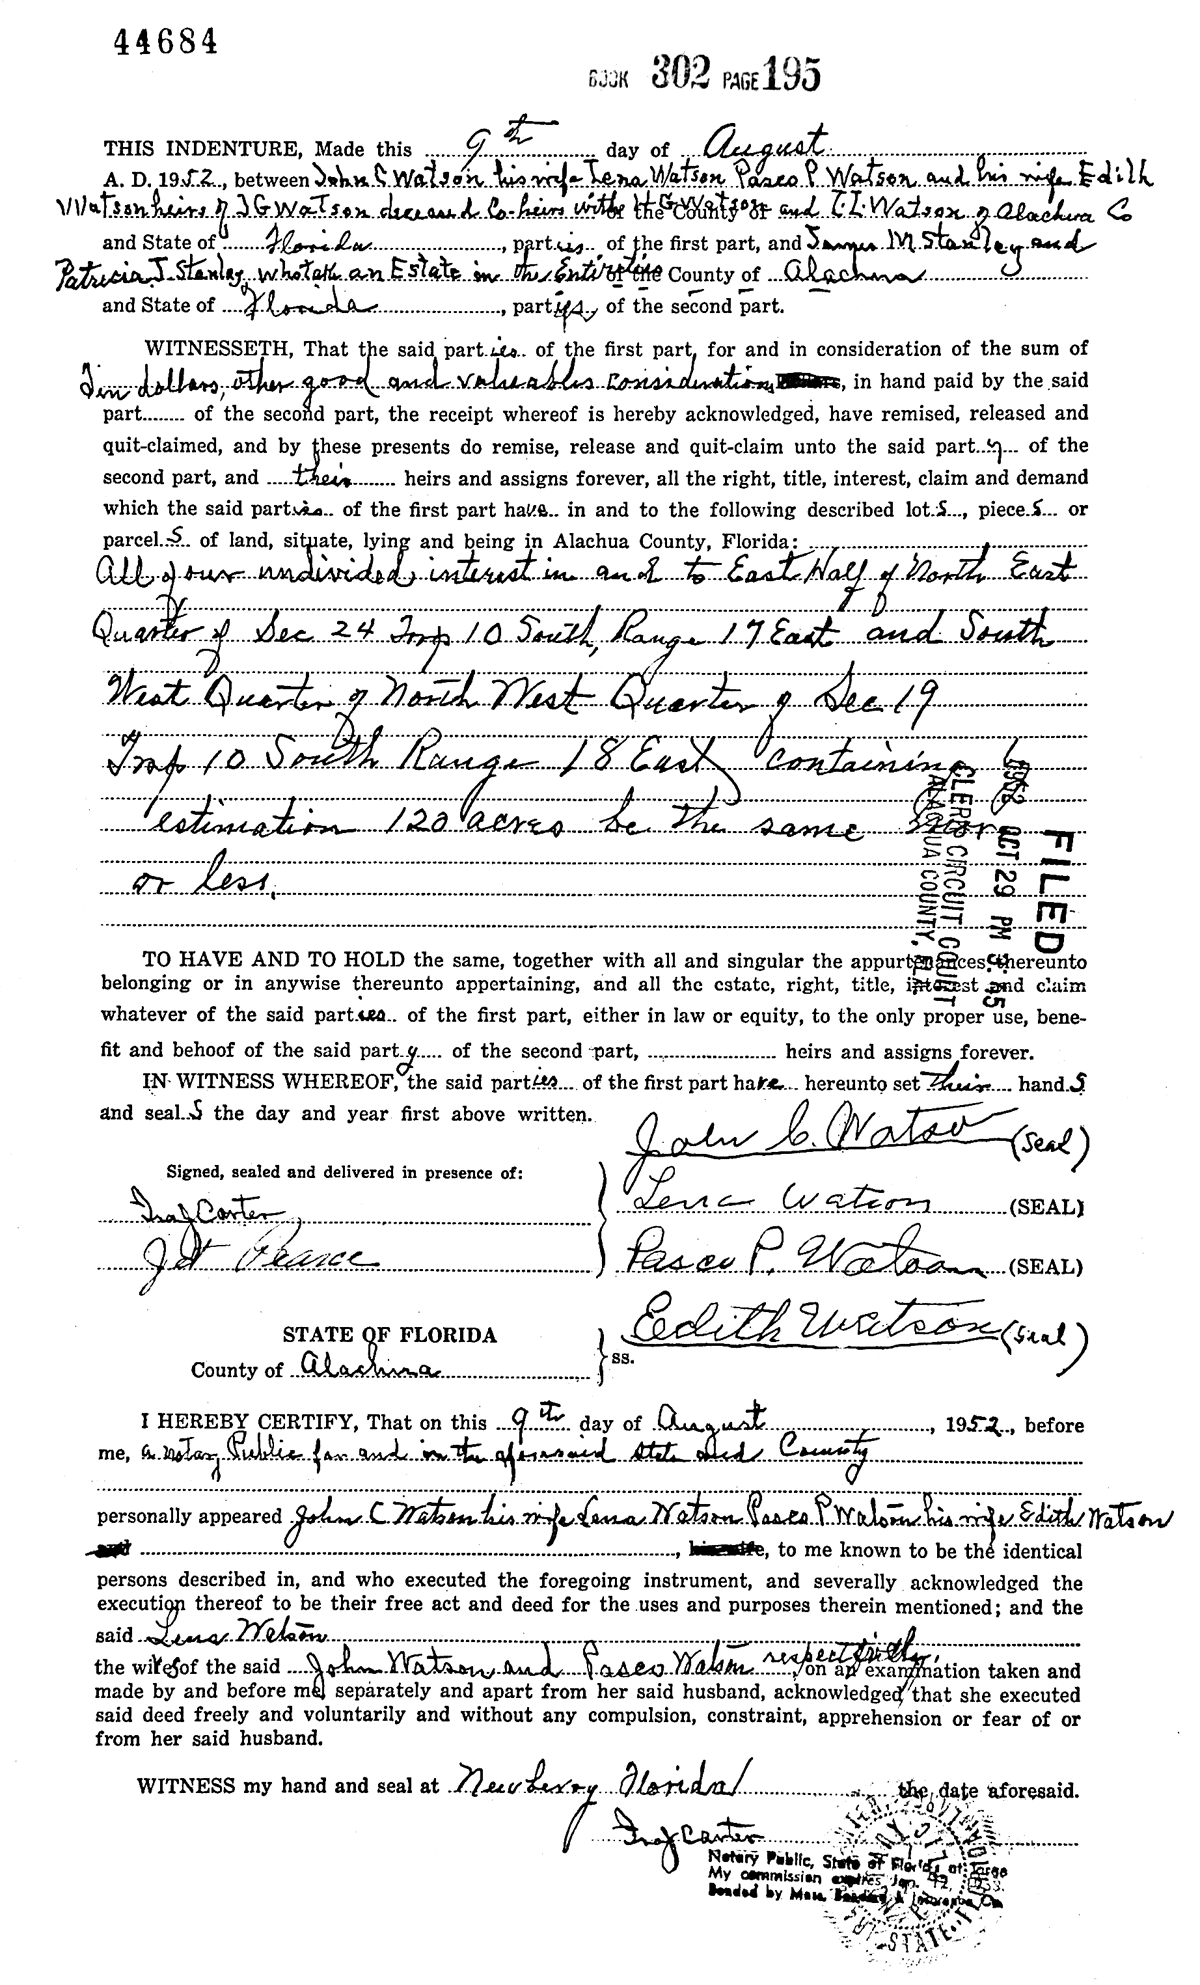 44684
BOOK 302 PAGE 195
THIS INDENTURE, Made this 9th day of August
A. D. 1952, between John C Watson his wife Lena Watson Pasco P Watson and his wife Edith
Watson heirs of J G Watson deceased Co-heirs with H G Watson and T. L. Watson of Alachua Co
and State of Florida, parties of the first part, and James M Stanley and
Patricia J. Stanley, who take an Estate in the Entireties of the County of Alachua
and State of Florida, partys, of the second part.
WITNESSETH, That the said parties of the first part, for and in consideration of the sum of
Tin dollars, other good and valuables consideration, in hand paid by the said
part........ of the second part, the receipt whereof is hereby acknowledged, have remised, released and
quit-claimed, and by these presents do remise, release and quit-claim unto the said party of the
second part, and their heirs and assigns forever, all the right, title, interest, claim and demand
which the said parties of the first part have in and to the following described lots, pieces or
parcels of land, situate, lying and being in Alachua County, Florida:
All of our undivided interest in and to East Half of North East
Quarter of Sec 24 Twp 10 South, Range 17 East and South
West Quarter of North West Quarter of Sec 19
Twp 10 South Range 18 East containing
estimation 120 acres be the same more
or less.
FILED
1952 OCT 29 PM 3:45
CLERK CIRCUIT COURT
ALACHUA COUNTY, FLA.
TO HAVE AND TO HOLD the same, together with all and singular the appurtenances thereunto
belonging or in anywise thereunto appertaining, and all the estate, right, title, interest and claim
whatever of the said parties of the first part, either in law or equity, to the only proper use, bene-
fit and behoof of the said party of the second part, ........ heirs and assigns forever.
IN WITNESS WHEREOF, the said parties of the first part have hereunto set their hands
and seals the day and year first above written.
John C. Watson (Seal)
Signed, sealed and delivered in presence of:
Ira J Carter Lena Watson (SEAL)
Pearce Pasco P. Watson (SEAL)
Edith Watson (Seal)
STATE OF FLORIDA
County of Alachua ss.
I HEREBY CERTIFY, That on this 9th day of August, 1952, before
me, a notary Public for and in the aforesaid State and County
personally appeared John C Watson his wife Lena Watson Pasco P Watson his wife Edith Watson
, to me known to be the identical
persons described in, and who executed the foregoing instrument, and severally acknowledged the
execution thereof to be their free act and deed for the uses and purposes therein mentioned; and the
said Lena Watson
the wifes of the said John Watson and Pasco Watson respectfully, on an examination taken and
made by and before me, separately and apart from her said husband, acknowledged that she executed
said deed freely and voluntarily and without any compulsion, constraint, apprehension or fear of or
from her said husband.
WITNESS my hand and seal at Newberry Florida the date aforesaid.
Ira J Carter
Notary Public, State of Florida at large
My commission expires Jan. 1953.
Bonded by Mass. Bonding & Insurance Co.